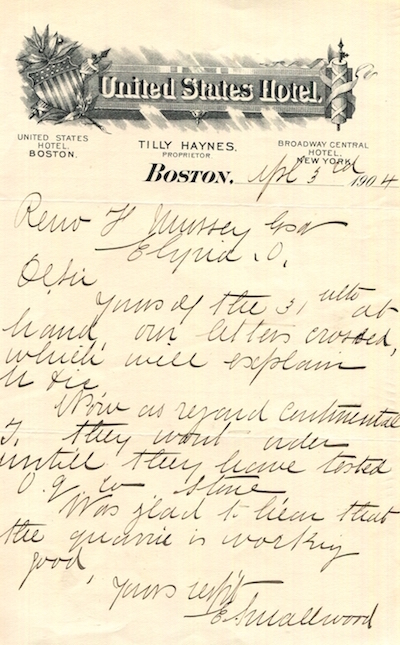 United States Hotel.
UNITED STATES
HOTEL.
BOSTON.
TILLY HAYNES.
PROPRIETOR
BROADWAY CENTRAL
HOTEL.
NEW YORK
BOSTON, Apl 3rd 1904
H Mussey Esq
Elyria .O.
D Sir
Yours of the 31 ulto at
hand, our letters crossed,
which will explain
Now as regard Continental
they wont order
untill they have tested
O.Q. Co stone
Was glad to hear that
the quarrie is working
good,
yours respt
E Smallwood